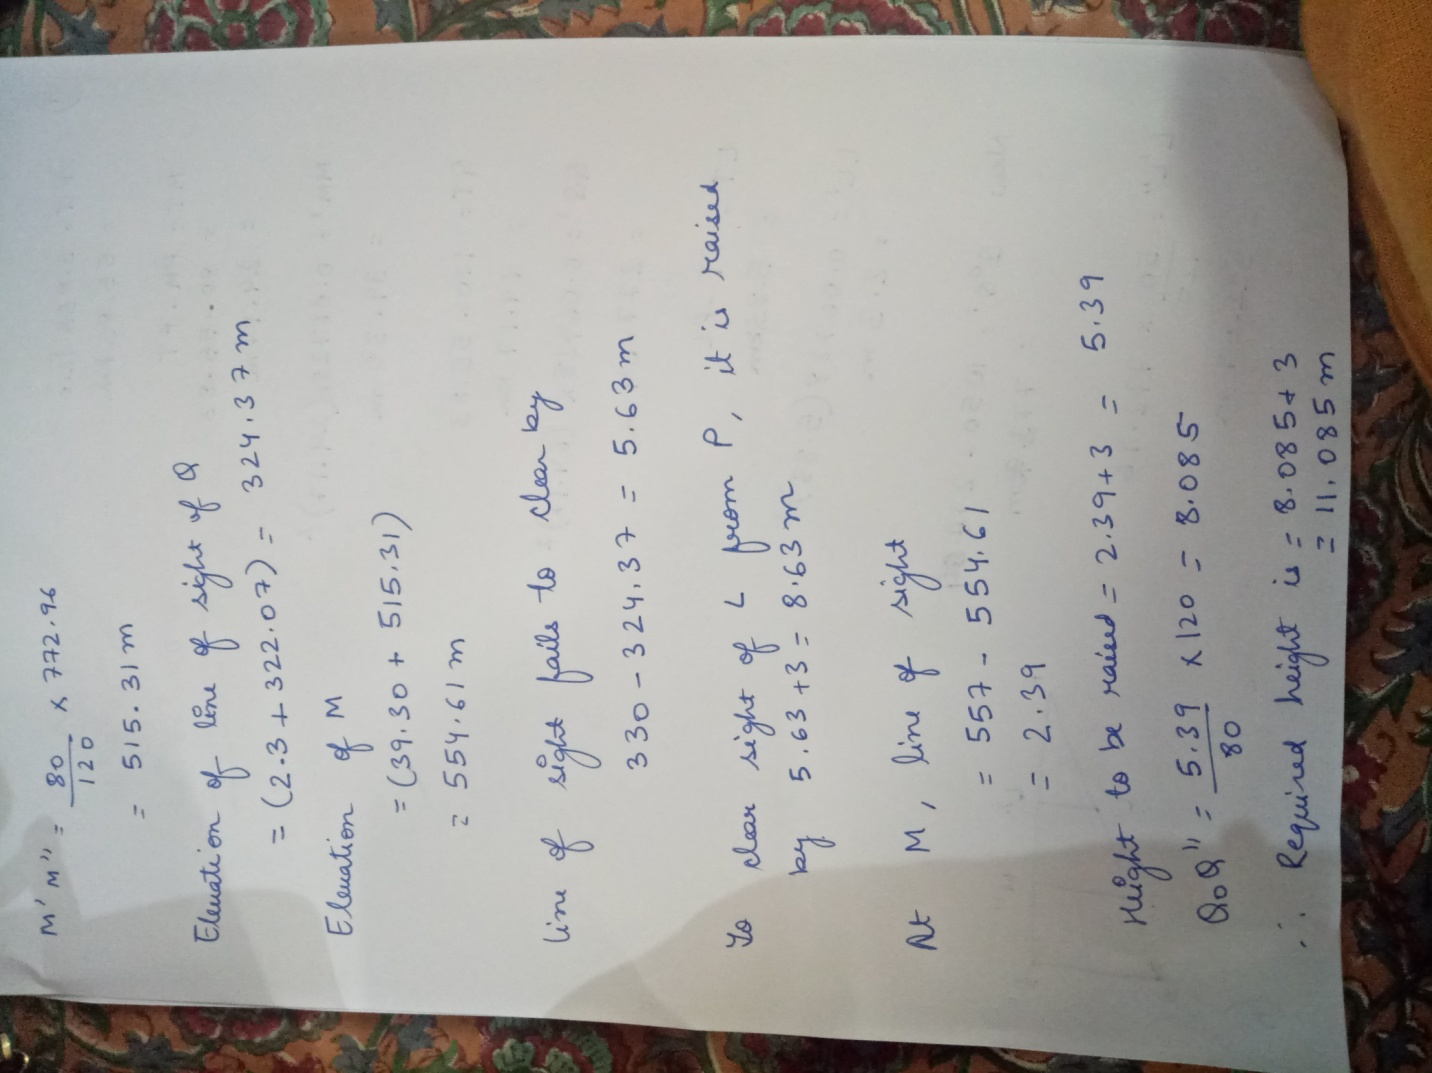 M'M" = 80/120 x 772.96
= 515.31 m
Elevation of line of sight of Q
= (2.3 + 322.07) = 324.37 m
Elevation of M
= (39.30 + 515.31)
= 554.61 m
line of sight fails to clear by
330 - 324.37 = 5.63 m
To clear sight of L from P, it is raised
by 5.63 + 3 = 8.63 m
At M, line of sight
= 557 - 554.61
= 2.39
Height to be raised = 2.39 + 3 = 5.39
QoQ" = 5.39/80 x 120 = 8.085
∴ Required height is = 8.085 + 3
= 11.085 m